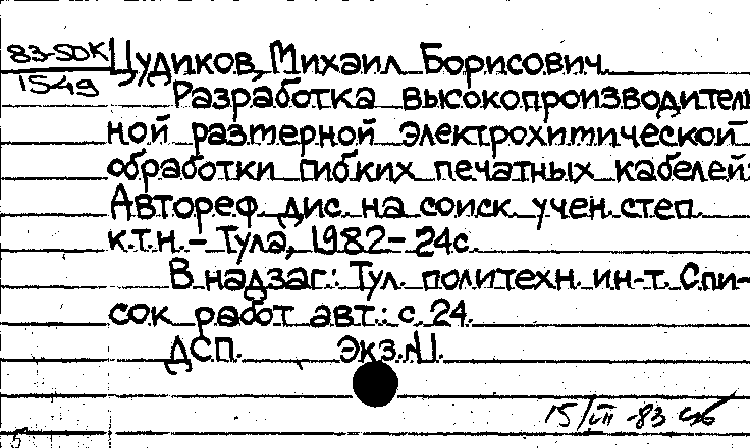 83-50К Цудиков, Михаил Борисович
1549
Разработка высокопроизводитель
ной размерной электрохимической
обработки гибких печатных кабелей:
Автореф. дис. на соиск. учен. степ.
к.т.н. - Тула, 1982 - 24с.
В надзаг.: Тул. политехн. ин-т. Спи-
сок работ авт.: с. 24.
ДСП. Экз. N1.
15/VII -83
5